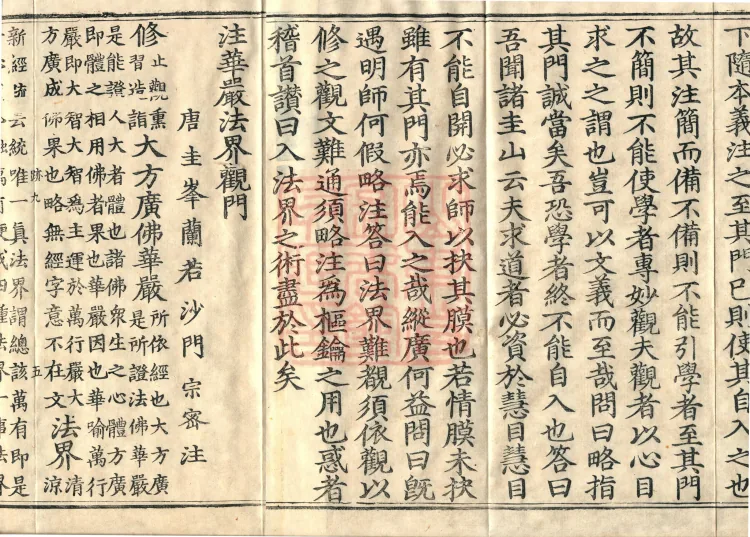 下隨本義注之至其門已則使其自入之也
故其注簡而備不備則不能引學者至其門
不簡則不能使學者專妙觀夫觀者以心目
求之之謂也豈可以文義而至哉問曰略指
其門誠當矣吾恐學者終不能自入也答曰
吾聞諸圭山云夫求道者必資於慧目慧目
不能自開必求師以抉其膜也若情膜未抉
雖有其門亦焉能入之哉縱廣何益問曰既
遇明師何假略注答曰法界難覩須依觀以
修之觀文難通須略注為樞鑰之用也惑者
稽首讚曰入法界之術盡於此矣
注華嚴法界觀門
唐圭峯蘭若沙門宗密注
修止觀熏習造詣大方廣佛華嚴所依經也大方廣
是所證法佛華嚴是能證人大者體也諸佛眾生之心體方廣
即體之相用佛者果也華嚴因也華喻萬行
嚴即大智大智為主運於萬行嚴大
方廣成佛果也略無經字意不在文法界清涼
跡九
五
新經疏云統唯一真法界謂總該萬有即是